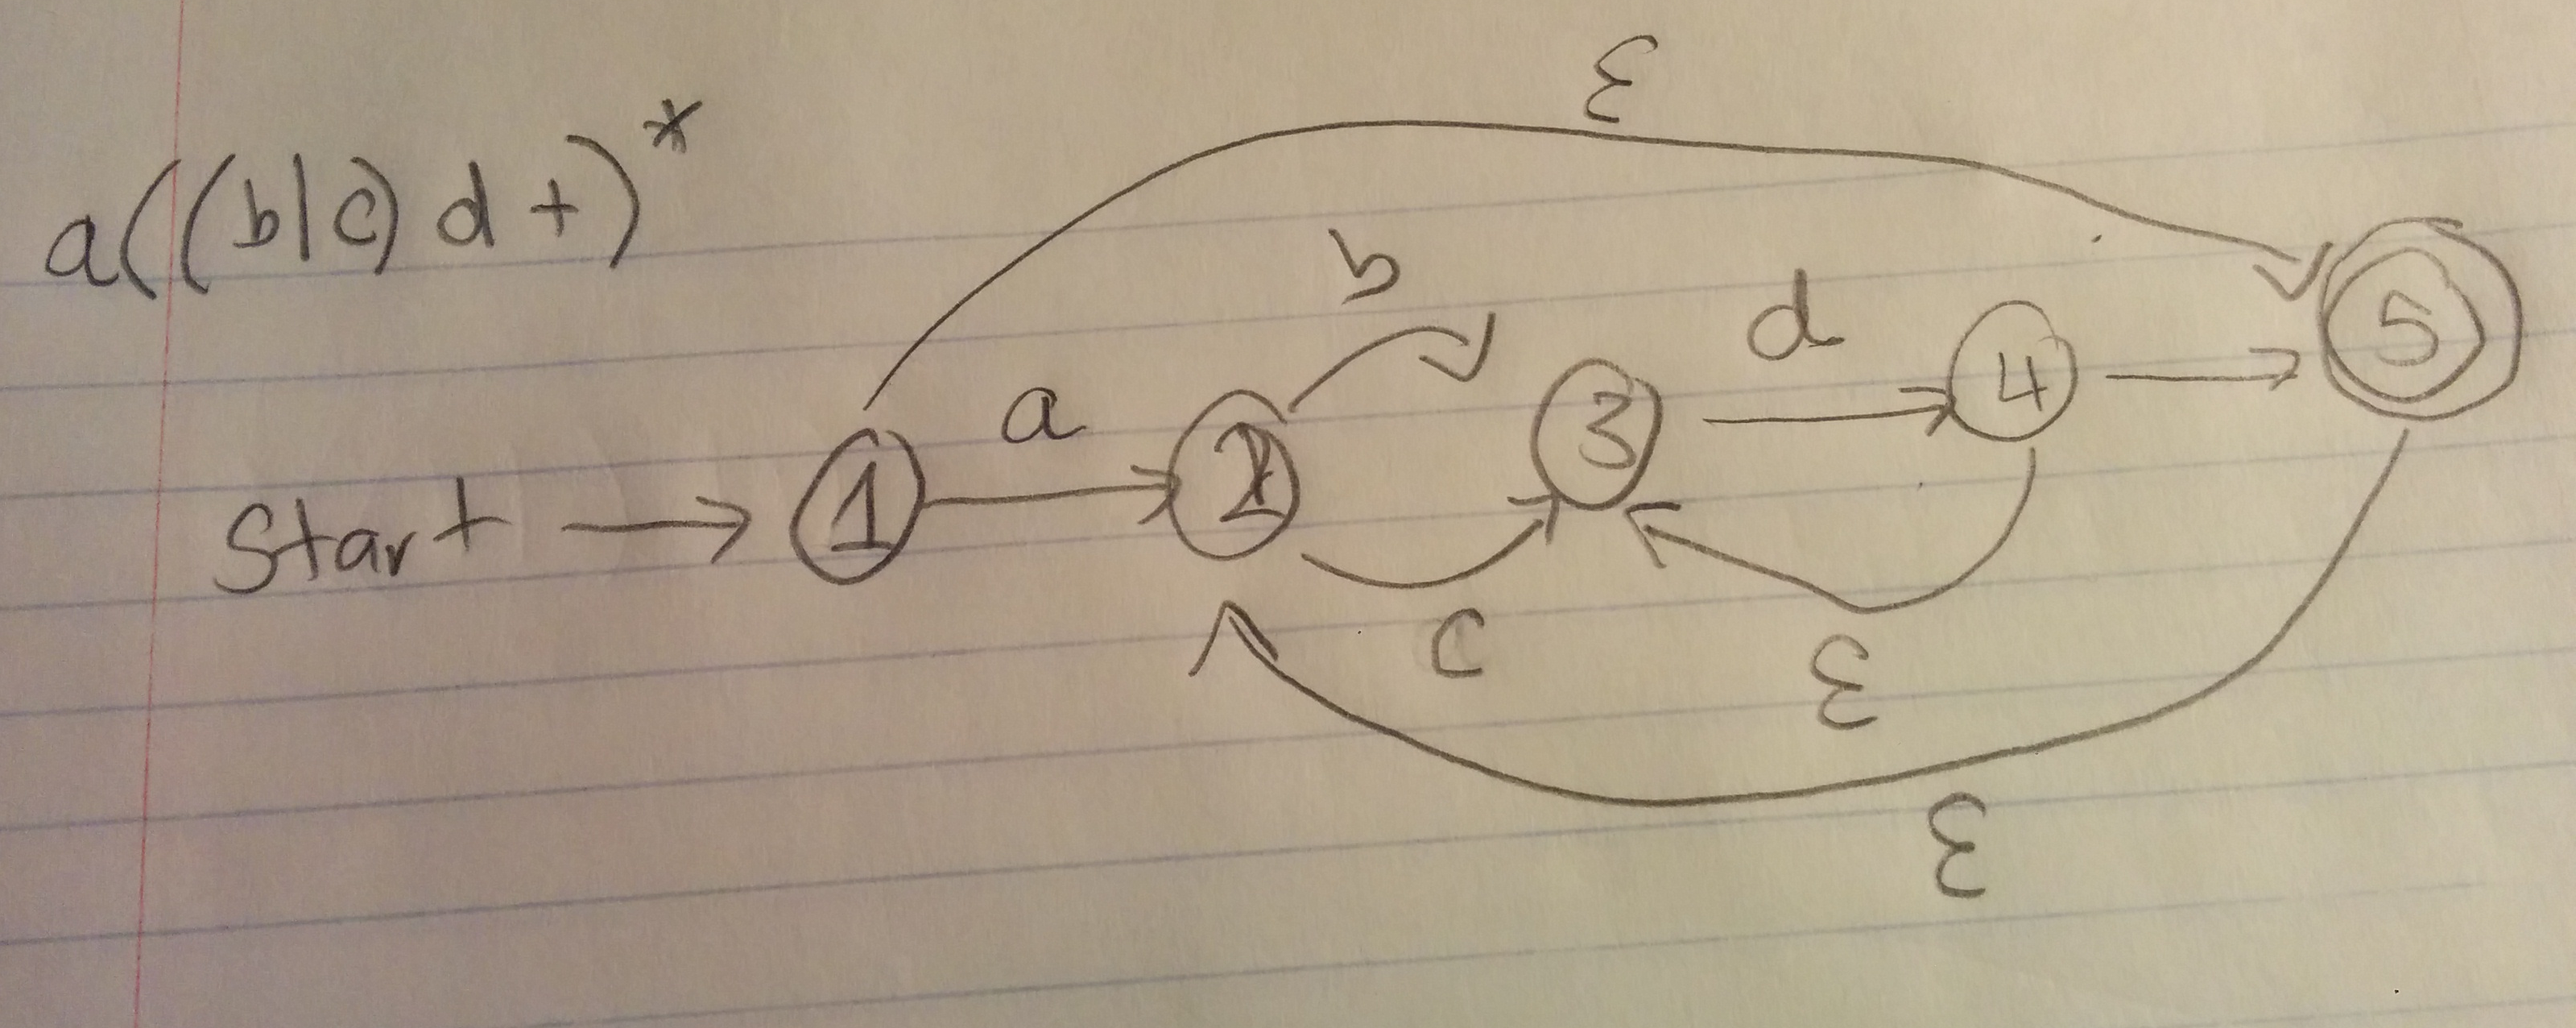 a((b|c)d+)*
ε
b
d
a
Start
1
2
3
4
5
c
ε
ε